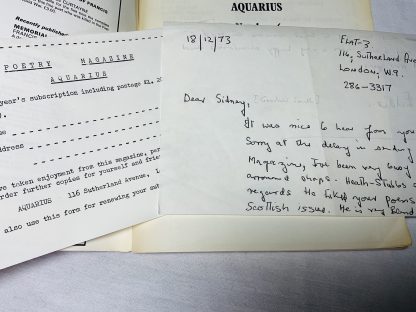 Recently publis
MEMORIAL
FRANCIS
T FRANCIS
AQUARIUS
POETRY MAGAZINE
AQUARIUS
year's subscription including postage £2.
me
Address
ve taken enjoyment from this magazine, per
order further copies for yourself and frien
AQUARIUS 116 Sutherland Avenue, L
also use this form for renewing your sub
18/12/73
FLAT-3
116, Sutherland Ave
London, W9.
286-3317
Dear Sidney,
It was nice to hear from you
Sorry at the delay in sending
Magazine, I've been very busy
around shops. Heath-Stubbs
regards. He takes your poems
Scottish issue. He is very Blind